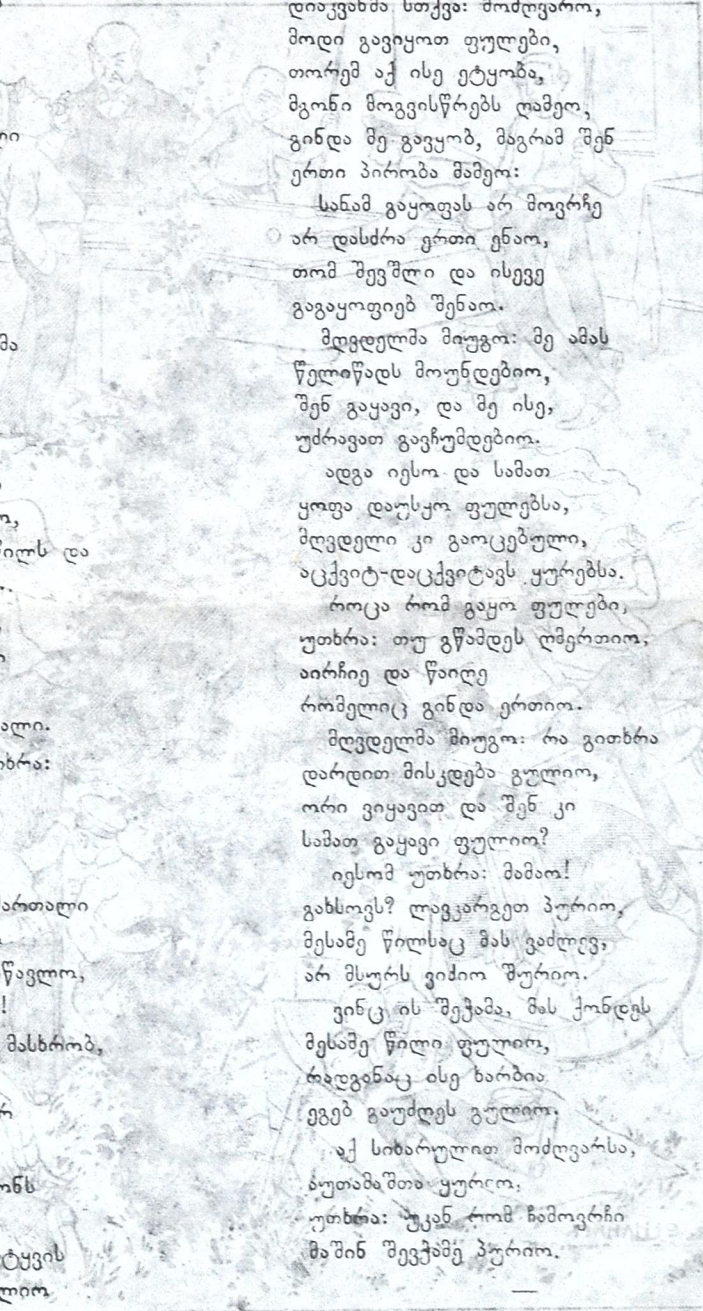 დიაკვანმა სთქვა: მოძღვარო,
მოდი გავიყოთ ფულები,
თორემ აქ ისე ეტყობა,
მგონი მოგვისწრებს ღამეო,
გინდა მე გავყობ, მაგრამ შენ
ერთი პირობა მამეო:
სანამ გაყოფას არ მოვრჩე
არ დასძრა ერთი ენაო,
თომ შევშლი და ისევე
გაგაყოფიებ შენაო.
მღვდელმა მიუგო: მე ამას
წელიწადს მოუნდებიო,
შენ გაყავი, და მე ისე,
უძრავათ გავჩუმდებიო.
ადგა იესო და სამათ
ყოფა დაუსყო ფულებსა,
მღვდელი კი გაოცებული,
აცქვიტ-დაცქვიტავს ყურებსა.
როცა რომ გაყო ფულები,
უთხრა: თუ გწამდეს ღმერთიო,
აირჩიე და წაიღე
რომელიც გინდა ერთიო.
მღვდელმა მიუგო: რა გითხრა
დარდით მისკდება გულიო,
ორი ვიყავით და შენ კი
სამათ გაყავი ფულიო?
იესომ უთხრა: მამაო!
გახსოვს? ლავკარგეთ პურიო,
მესამე წილსაც მას ვაძლევ,
არ მსურს ვიძიო შურიო.
ვინც ის შეჭამა, მას ქონდეს
მესამე წილი ფულიო,
რადგანაც ისე ხარბია
ეგებ გაუძღეს გულიო.
აქ სიხარულით მოძღვარსა,
აუთამაშთა ყურიო,
უთხრა: უკან რომ ჩამოვრჩი
მაშინ შევჭამე პურიო.
მა
წილს და
ალი.
ხრა:
მართალი
წავლო,
!
მასხრობ,
ონს
ტყვის
ლიო